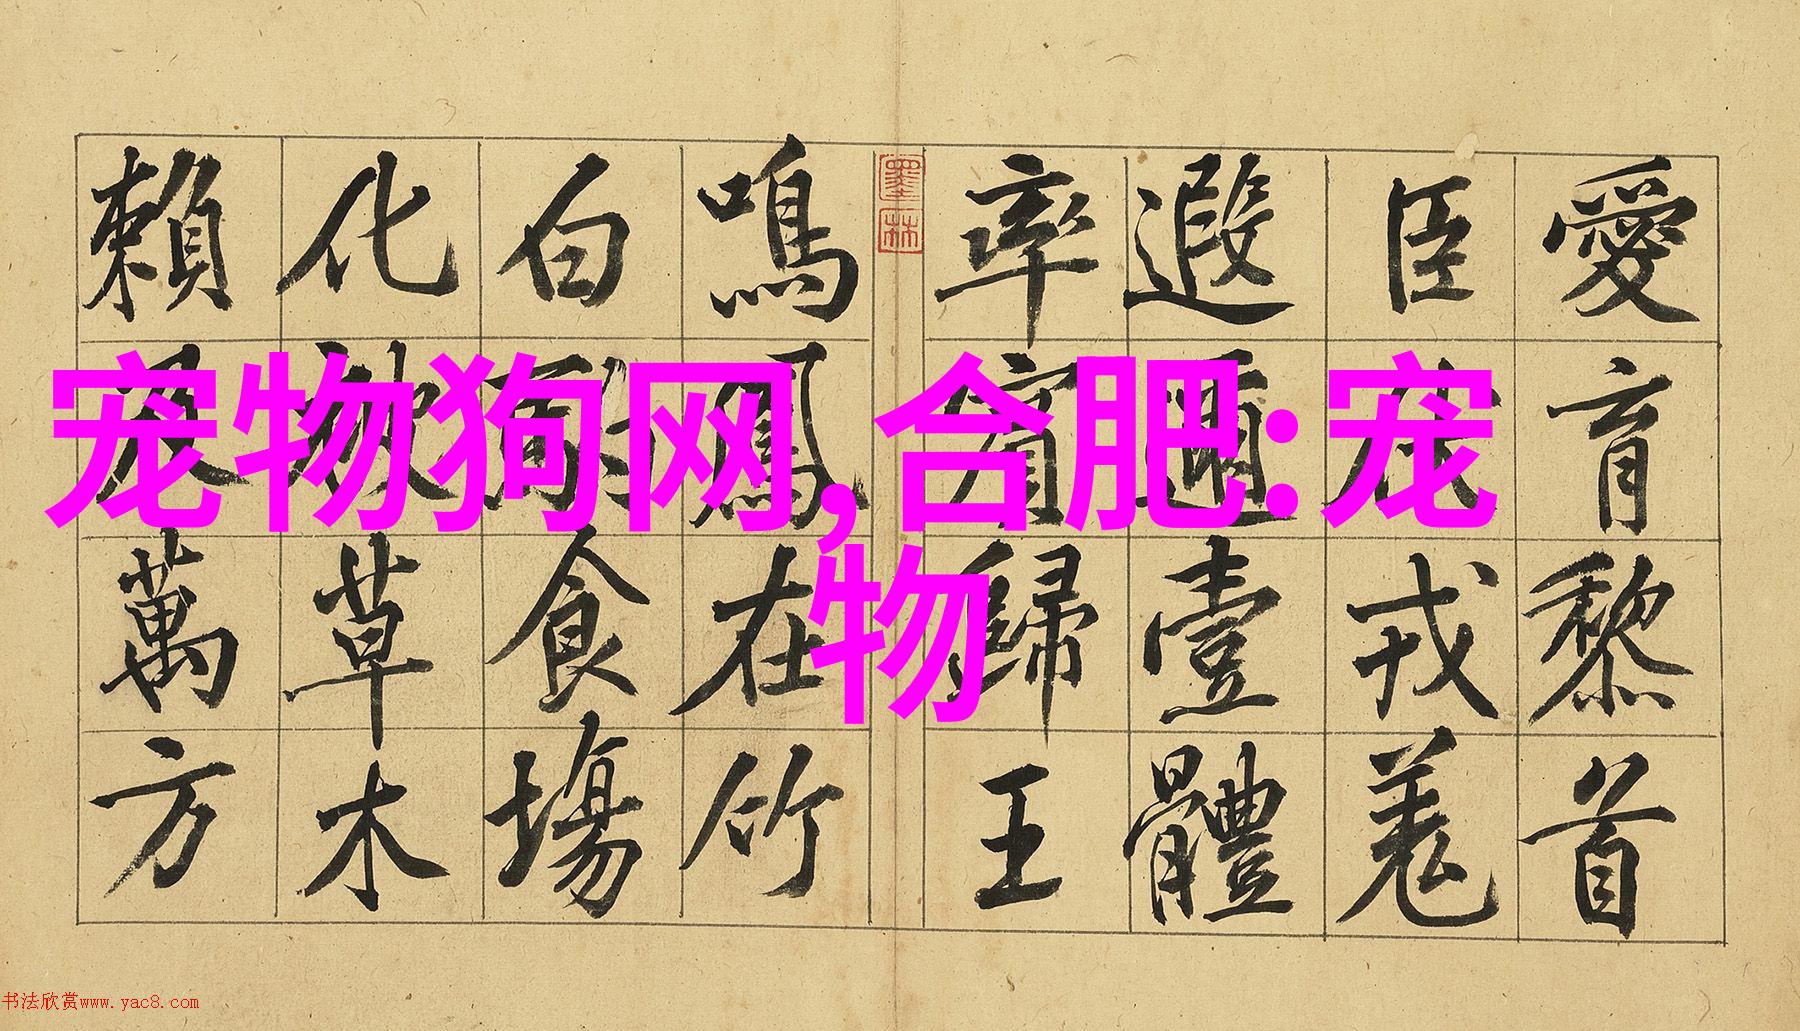 愛育黎首
臣伏戎羗
遐邇壹體
率賓歸王
墨林
鳴鳳在竹
白駒食場
化被草木
賴及萬方
宠物狗网,合肥:宠
物
书法欣赏www.yac8.com